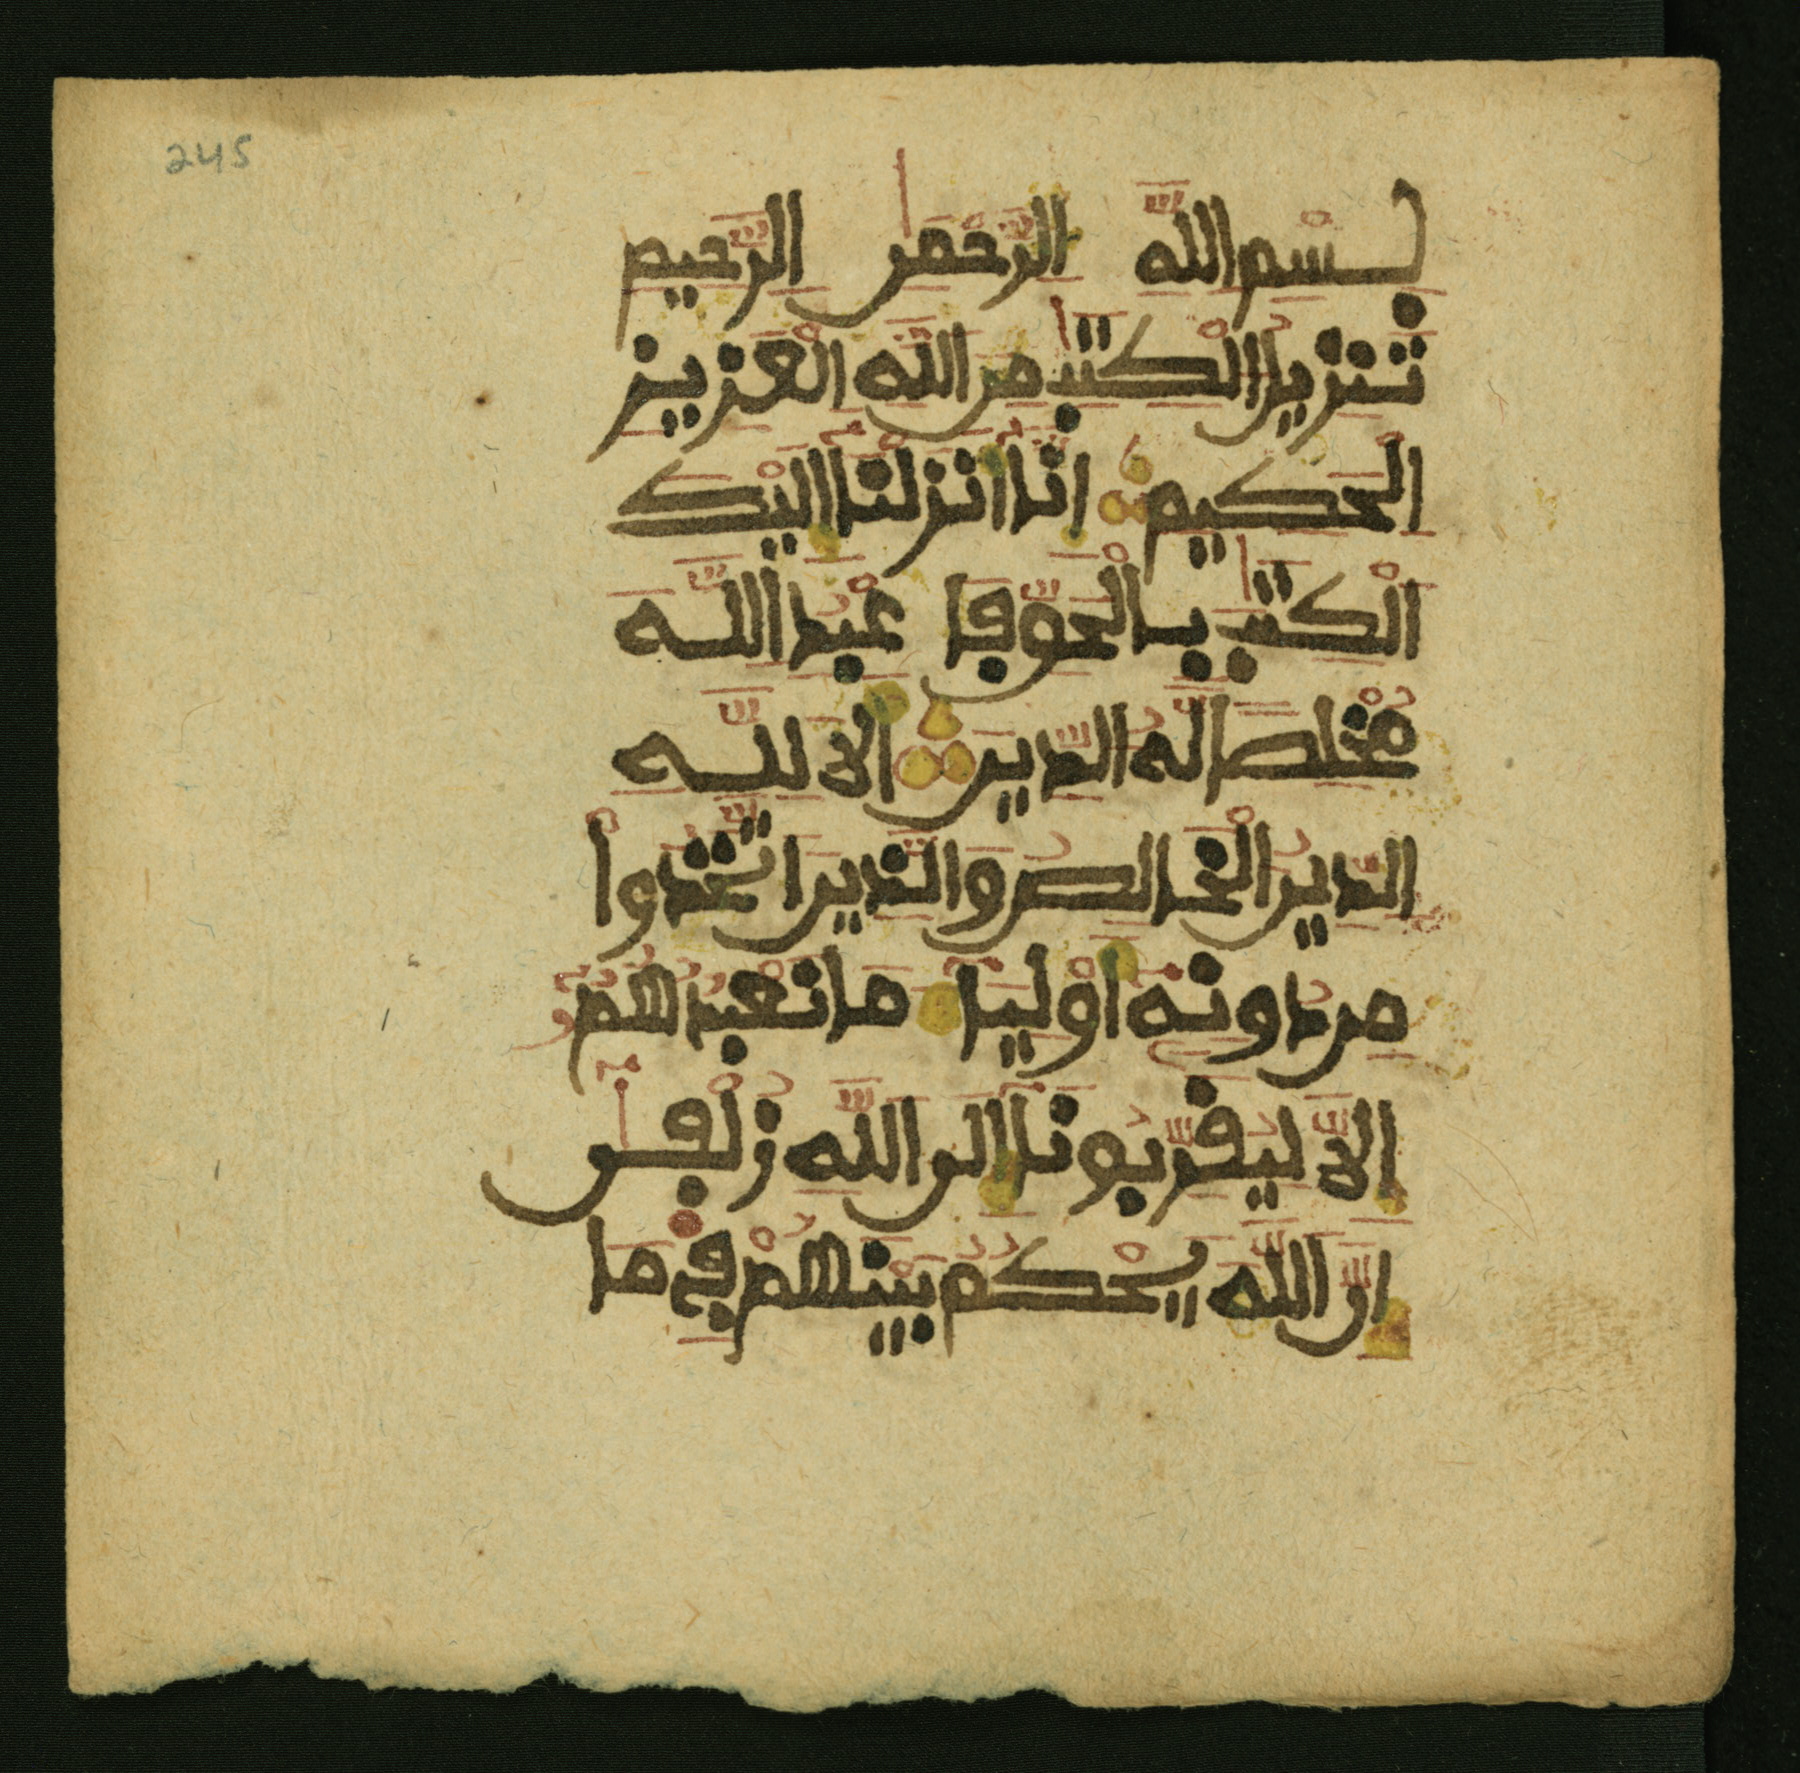 245
بِسْمِ اللَّهِ الرَّحْمَٰنِ الرَّحِيمِ
تَنزِيلُ الْكِتَٰبِ مِنَ اللَّهِ الْعَزِيزِ
الْحَكِيمِ إِنَّا أَنزَلْنَا إِلَيْكَ
الْكِتَٰبَ بِالْحَقِّ فَاعْبُدِ اللَّهَ
مُخْلِصًا لَّهُ الدِّينَ أَلَا لِلَّهِ
الدِّينُ الْخَالِصُ وَالَّذِينَ اتَّخَذُوا
مِن دُونِهِ أَوْلِيَاءَ مَا نَعْبُدُهُمُ
إِلَّا لِيُقَرِّبُونَا إِلَى اللَّهِ زُلْفَىٰ
إِنَّ اللَّهَ يَحْكُمُ بَيْنَهُمْ فِي مَا